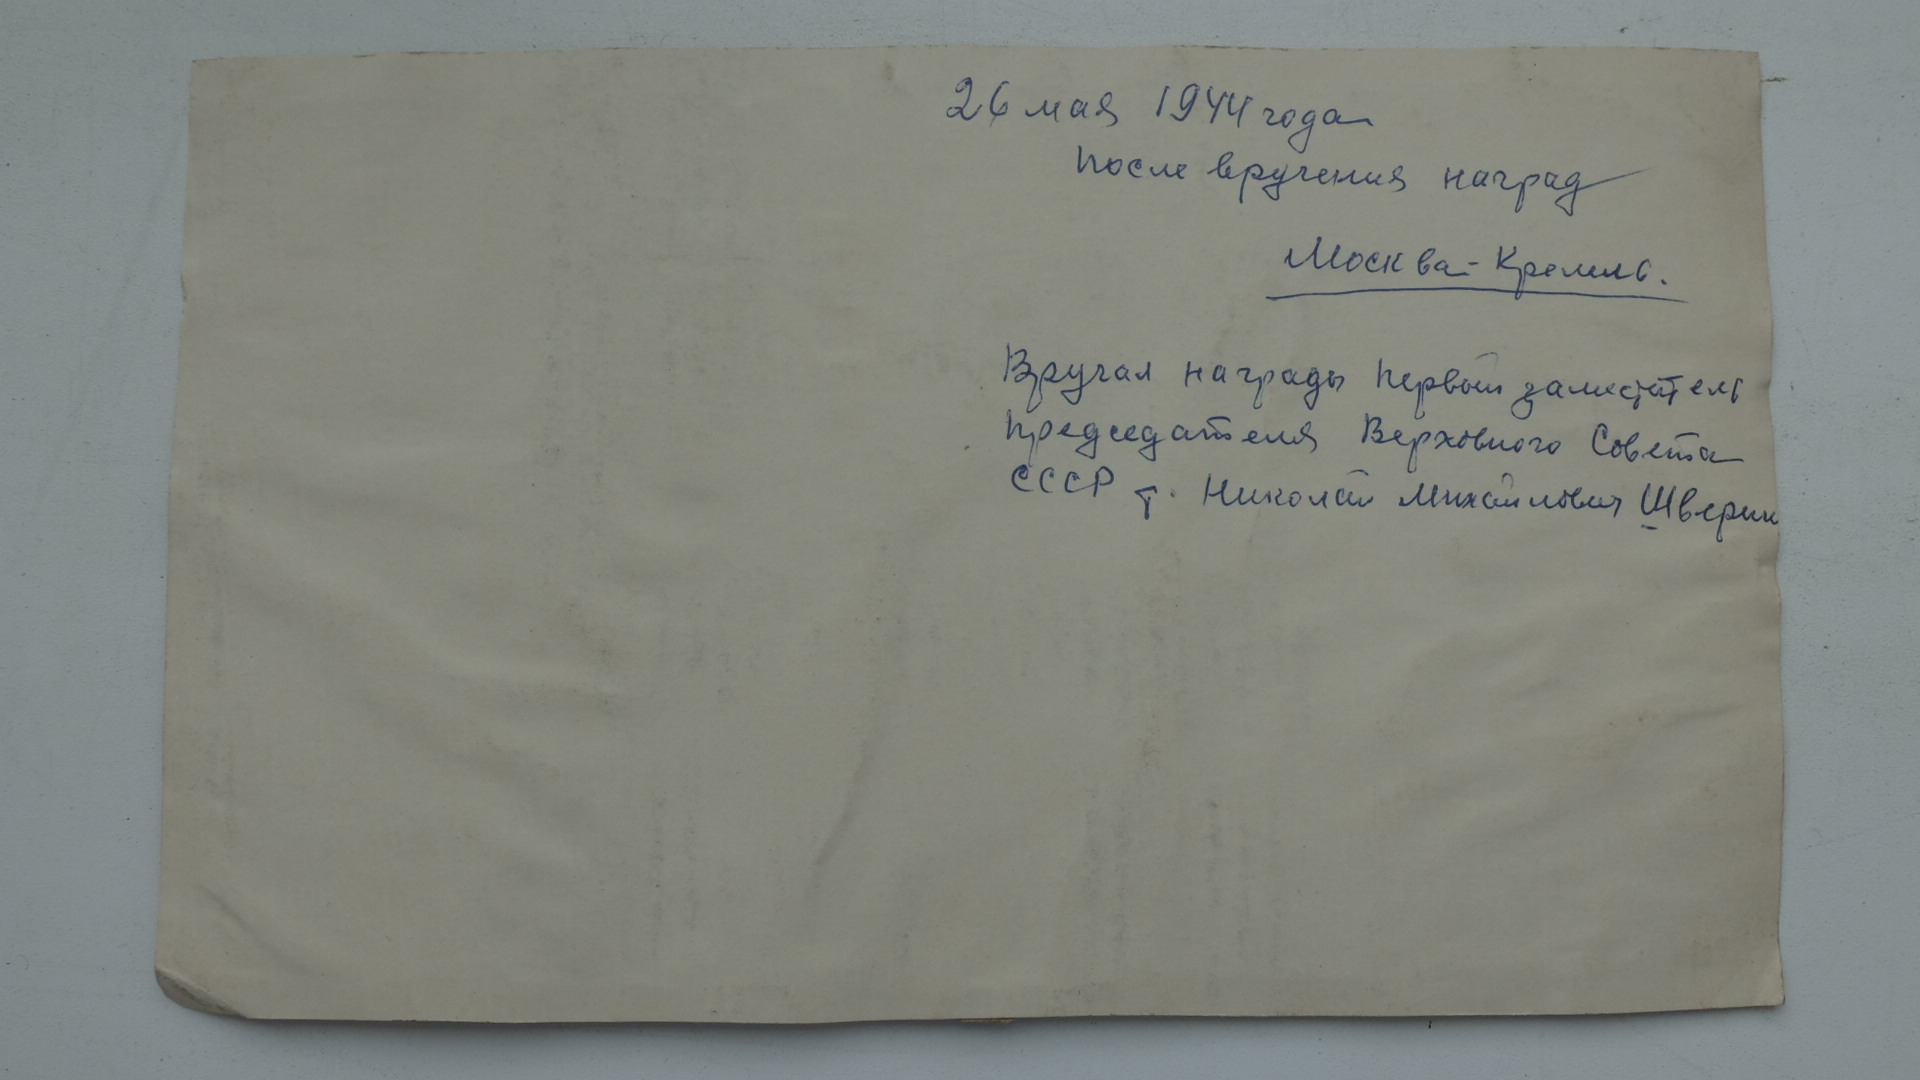 26 мая 1944 года
После вручения наград
Москва - Кремль.
Вручал награды Первый заместитель
Председателя Верховного Совета
СССР т. Николай Михайлович Шверни